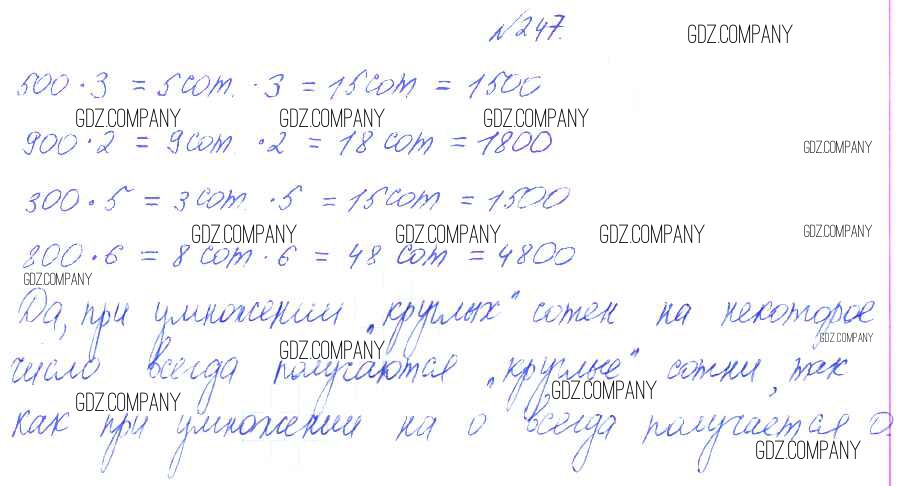 №247.
GDZ.COMPANY
500·3 = 5 сот. ·3 = 15 сот = 1500
GDZ.COMPANY GDZ.COMPANY GDZ.COMPANY
900·2 = 9 сот. ·2 = 18 сот = 1800
GDZ.COMPANY
300·5 = 3 сот. ·5 = 15 сот = 1500
GDZ.COMPANY GDZ.COMPANY GDZ.COMPANY GDZ.COMPANY
800·6 = 8 сот·6 = 48 сот = 4800
GDZ.COMPANY
Да, при умножении „круглых" сотен на некоторое
GDZ.COMPANY GDZ.COMPANY
число всегда получаются „круглые" сотни, так
GDZ.COMPANY GDZ.COMPANY
как при умножении на 0 всегда получается 0.
GDZ.COMPANY